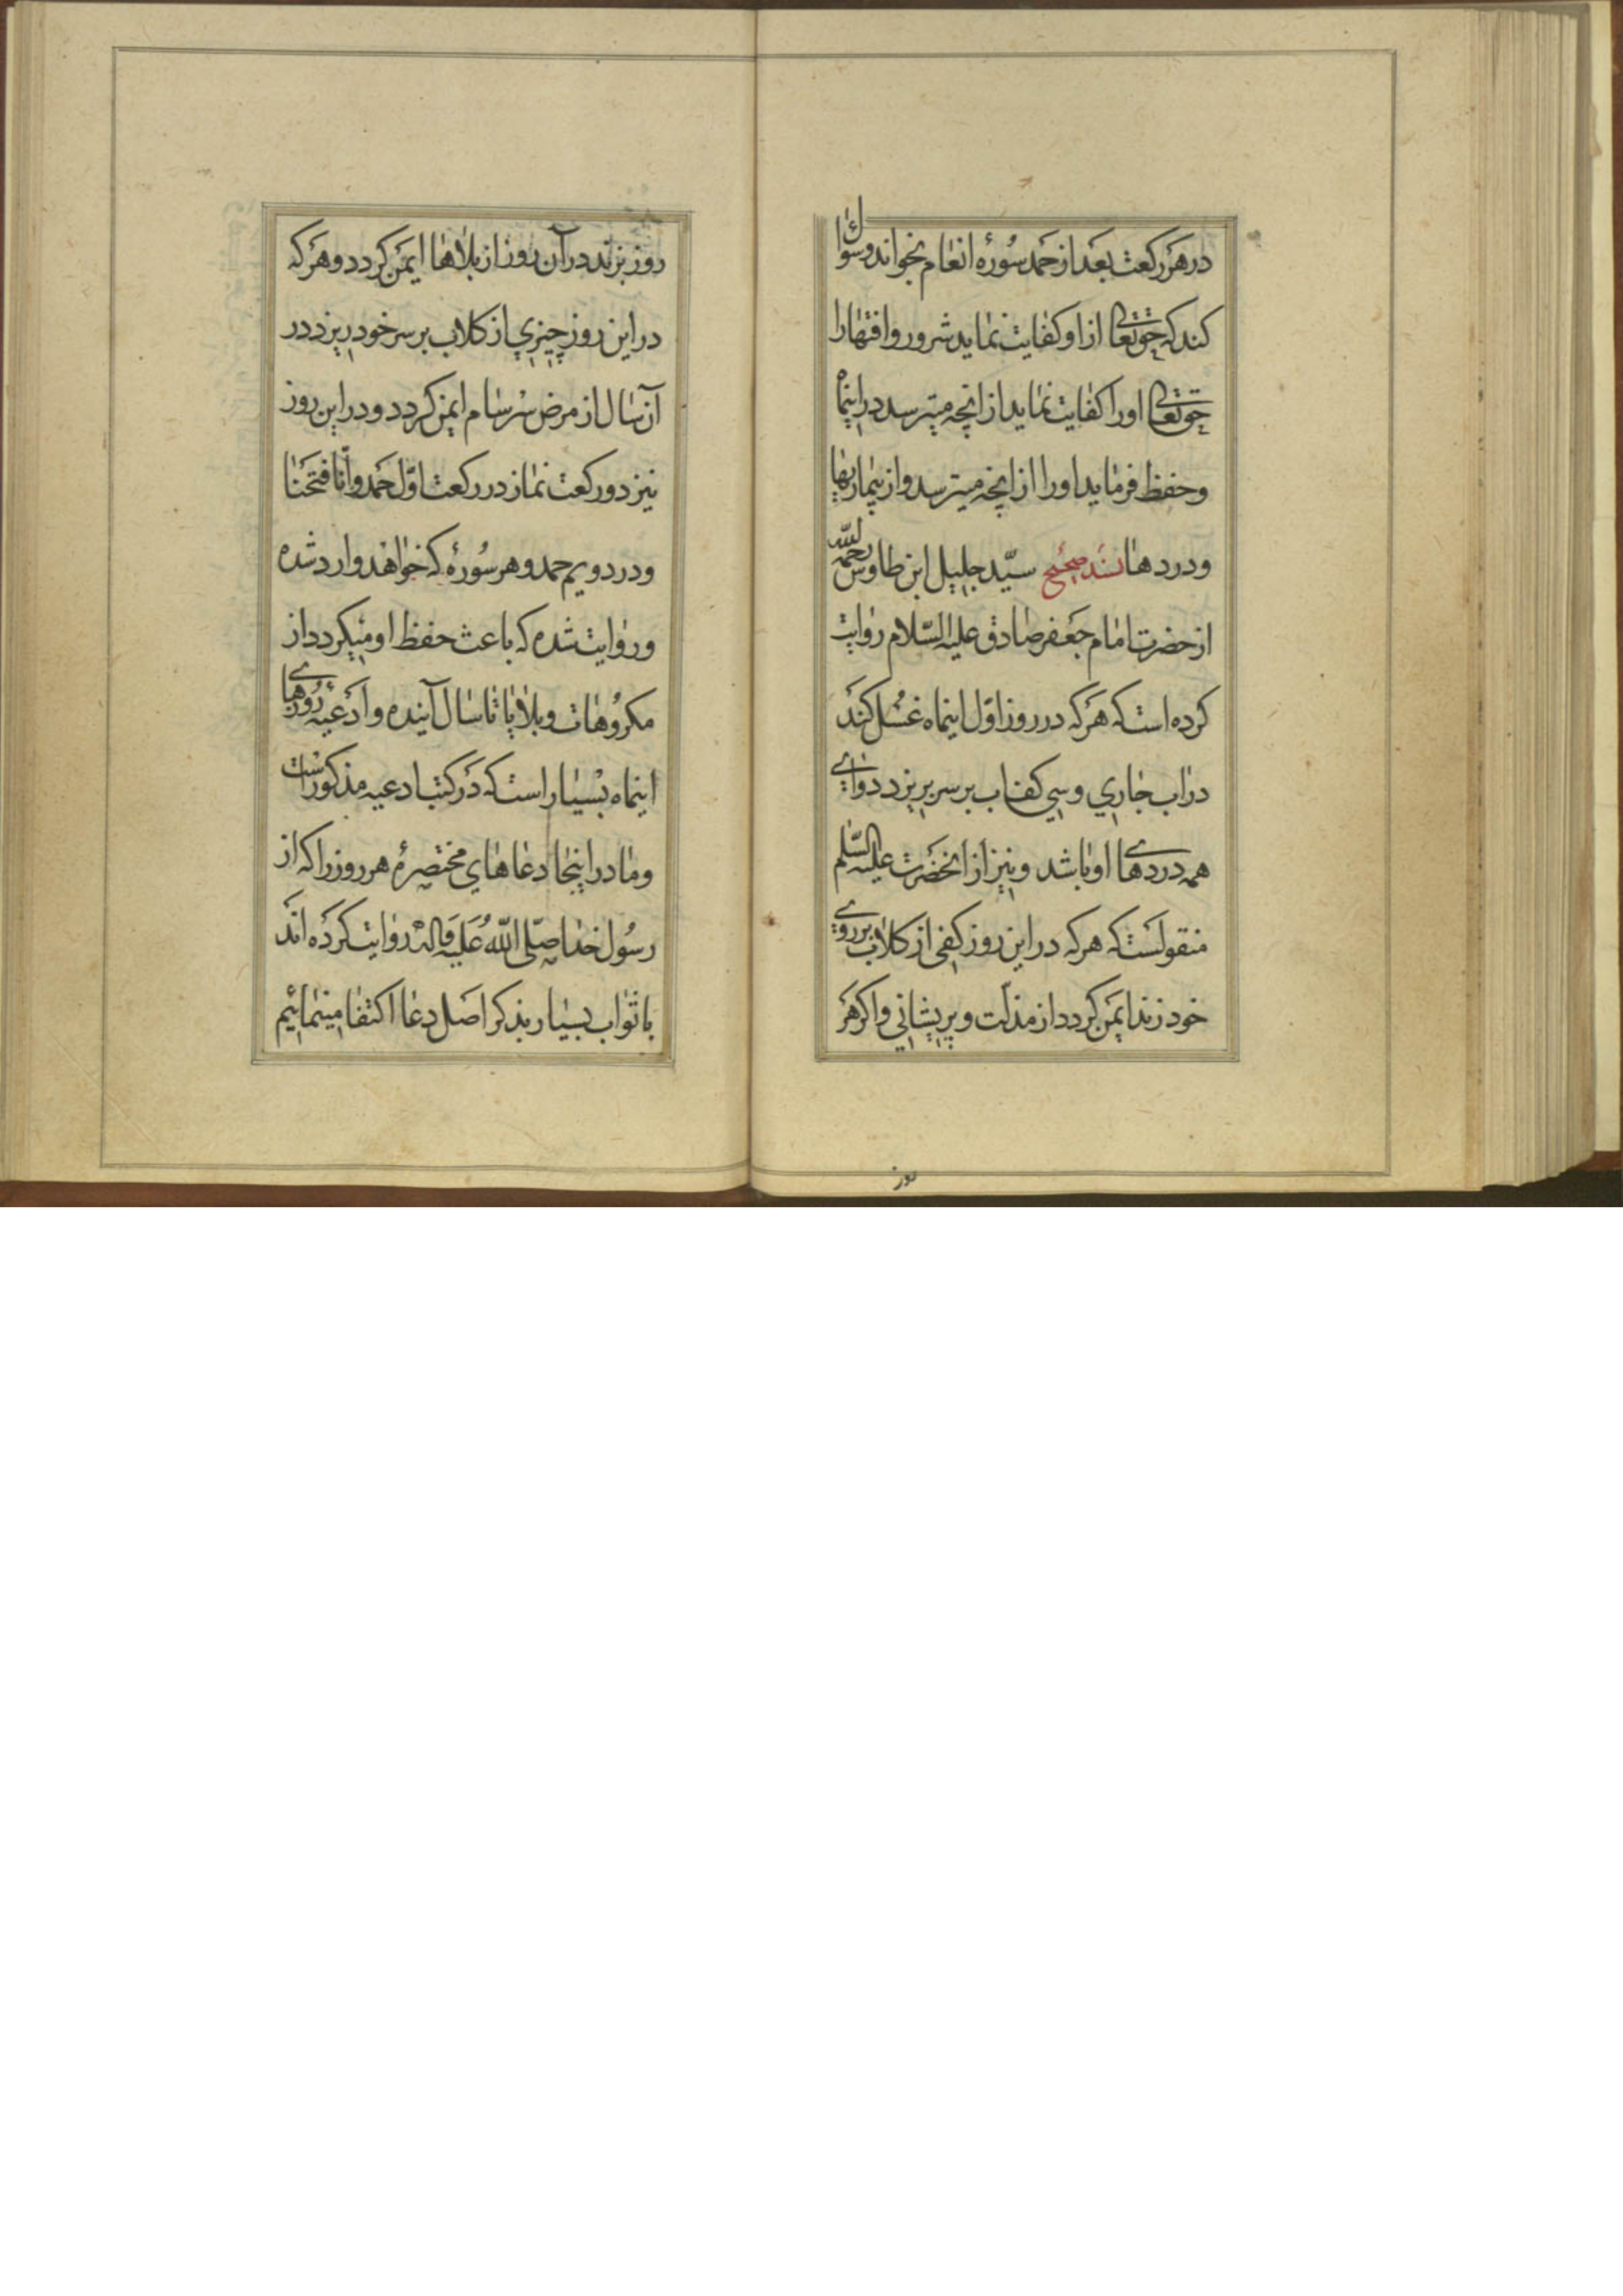 در هر رکعت بعد از حمد سورهٔ انعام بخواند و سؤال
کند که حقتعالی از او کفایت نماید شرور و افتهارا
حقتعالی اورا کفایت نماید از انچه میترسد در اینماه
و حفظ فرماید اورا از انچه میترسد و از بیماریها
و دردها بسند صحیح سیّد جلیل ابن طاوس رحمه الله
از حضرت امام جعفر صادق علیه السّلام روایت
کرده است که هرکه در روز اوّل اینماه غسل کند
در اب جاری و سی کف اب بر سر بریزد دوای
همه دردهای او باشد و نیز از انحضرت علیه السّلم
منقولست که هرکه در این روز کفی از کلاب بر روی
خود زند ایمن کردد از مذلّت و پریشانی و اکر هر
روز
روز بزند در آن روز از بلاها ایمن کردد و هرکه
در این روز چیزی از کلاب بر سر خود ریزد در
آن سال از مرض سرسام ایمن کردد و در این روز
نیز دو رکعت نماز در رکعت اوّل حمد و انّا فتحنا
و در دویم حمد و هر سورهٔ که خواهند وارد شده
و روایت شده که باعث حفظ او میکردد از
مکروهات و بلایا تا سال آینده و ادعیهٔ روزهای
اینماه بسیار است که در کتب ادعیه مذکور است
و ما در اینجا دعاهای مختصرهٔ هر روز را که از
رسول خدا صلّی الله علیه و اله روایت کرده اند
با ثواب بسیار بذکر اصل دعا اکتفا مینمائیم